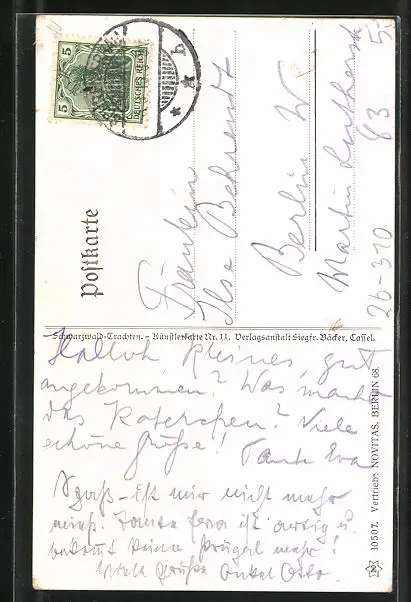 5 5
DEUTSCHES REICH
b
* *
Postkarte
Fräulein
Ilse Behrendt
Berlin W
Martin Lutherstr
83
5-
26-310
Schwarzwald-Trachten. – Künstlerkarte Nr. 11. Verlagsanstalt Siegfr. Bäcker, Cassel.
Halloh, Kleines, gut
angekommen? Was macht
das Katerchen? Viele
schöne Grüße! Tante Eva
Spaß – ist mir nicht mehr
Tante Eva ist artig u.
bekommt keine Prügel mehr!
Viele Grüße Onkel Otto.
10507. Vertrieb: NOVITAS, BERLIN 68.